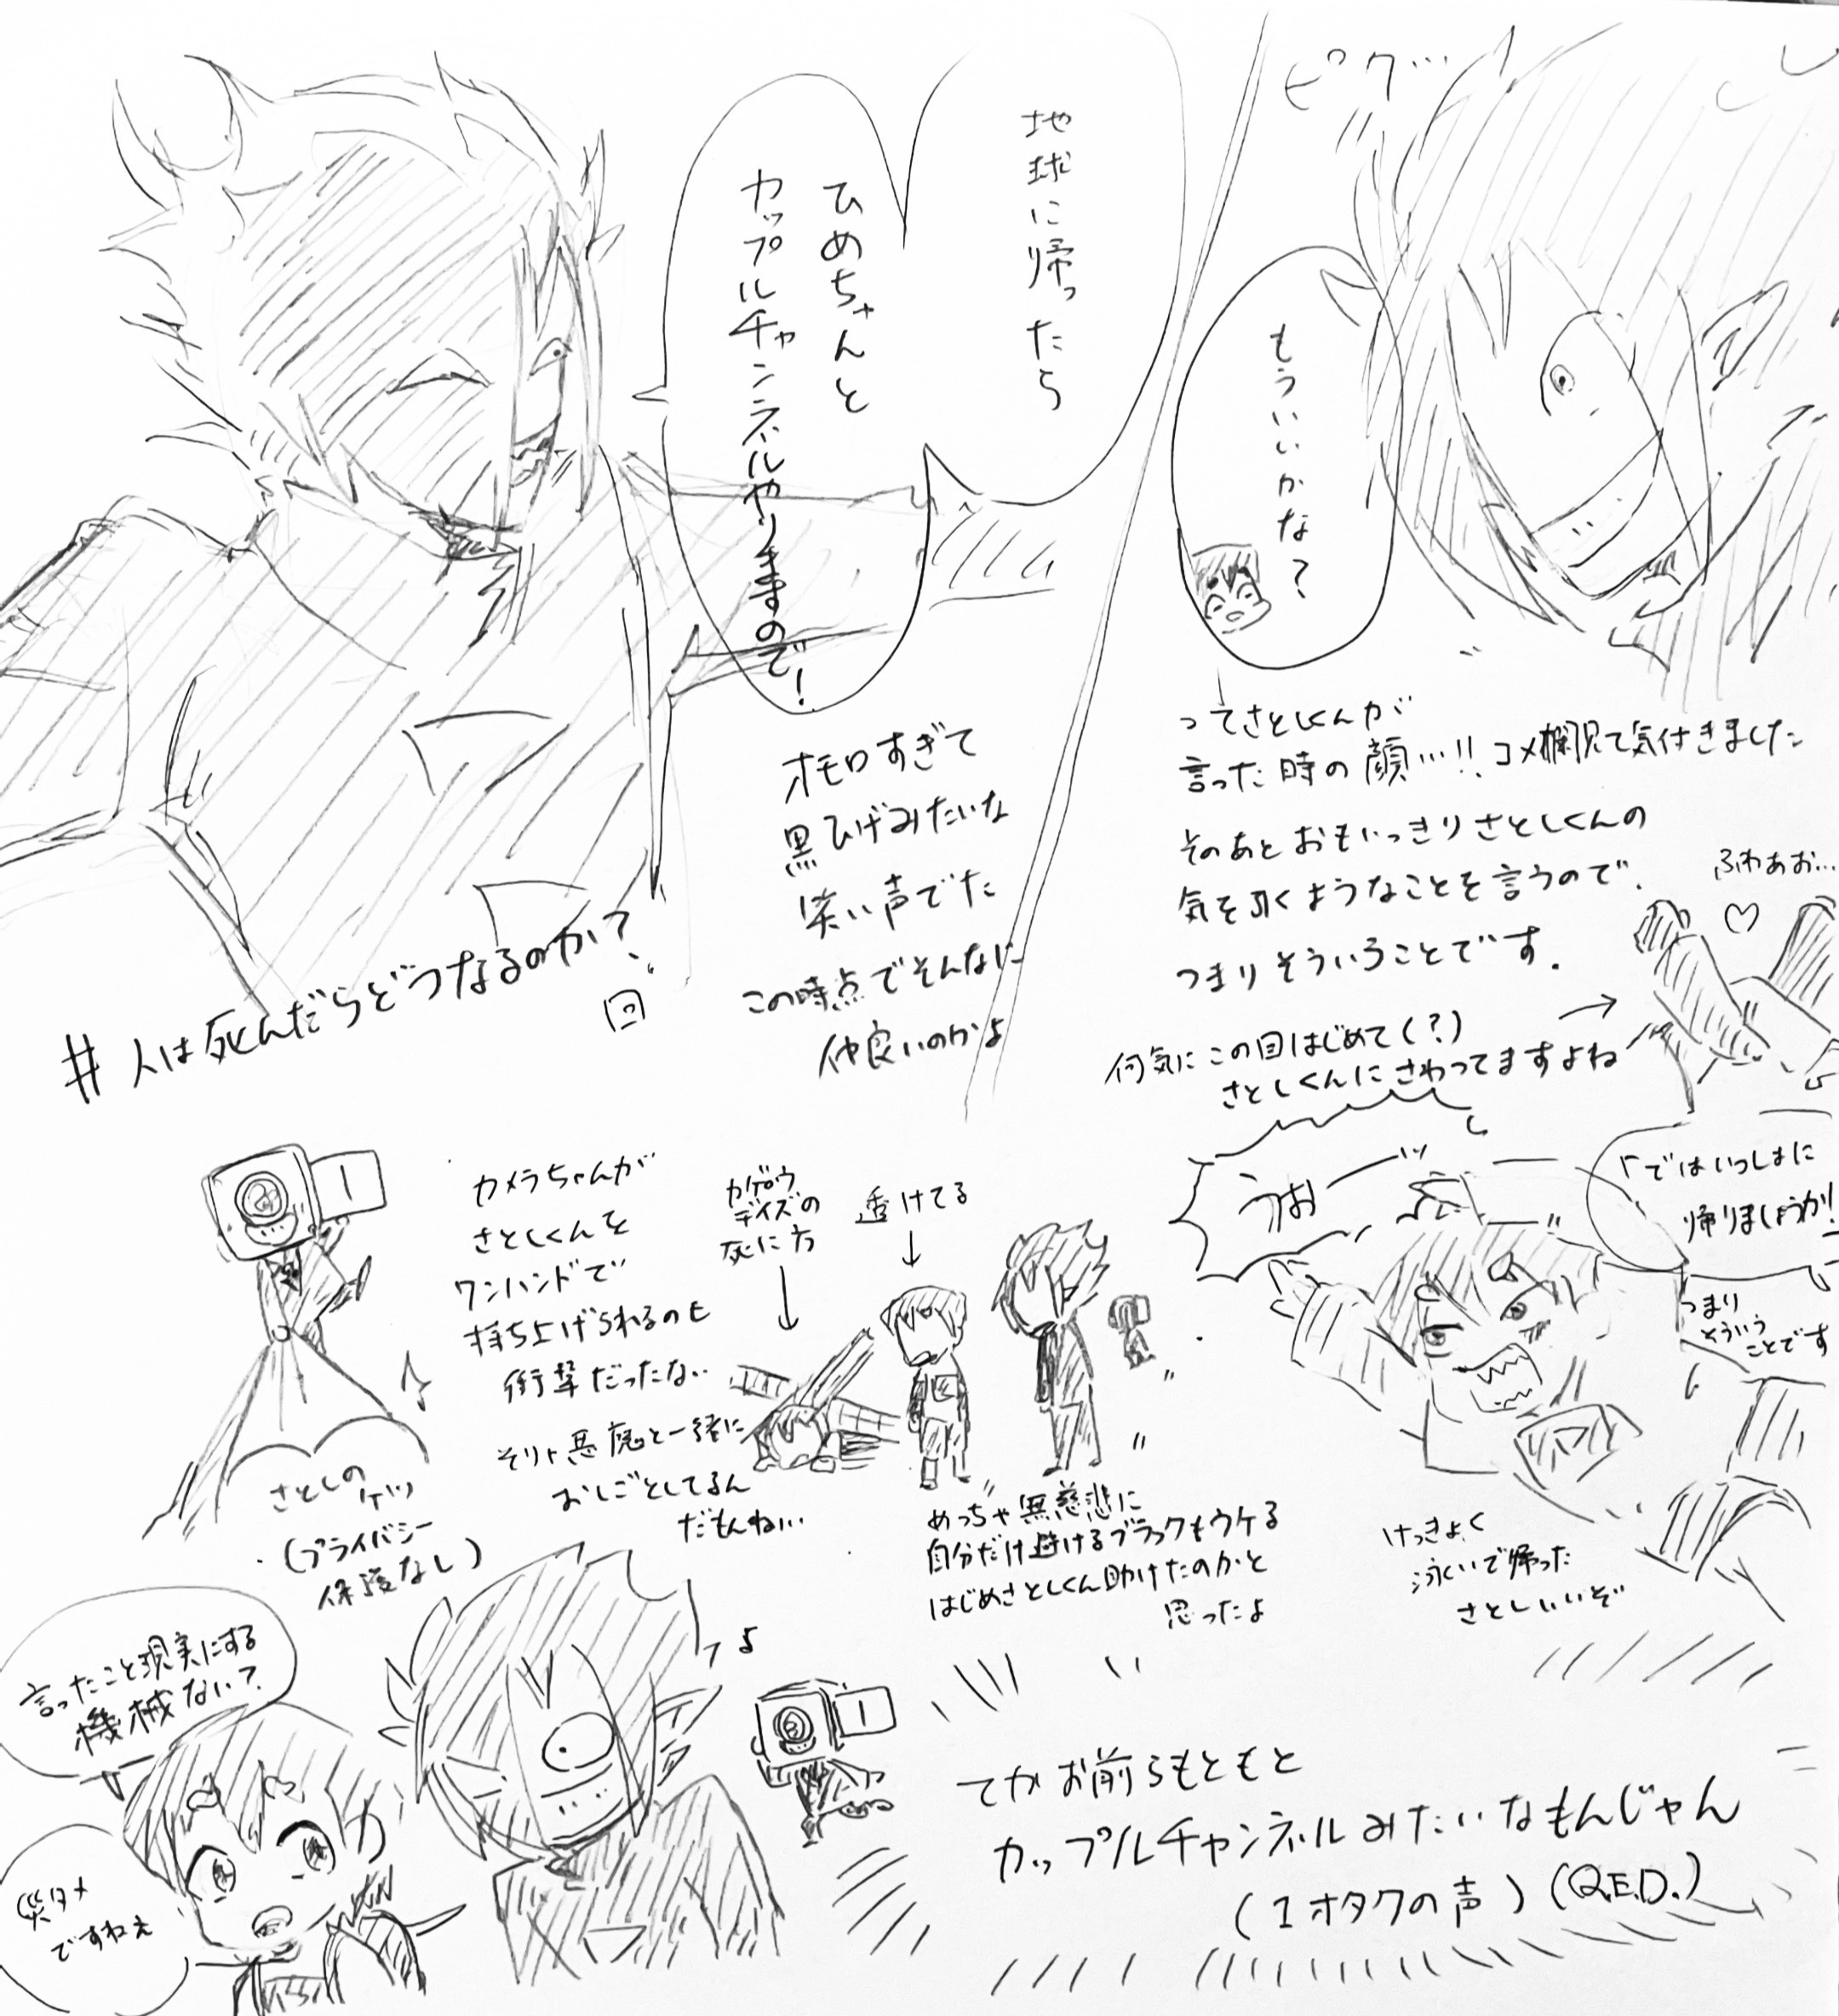 ピク…
もういいかな？
地球に帰ったら
ひめちゃんと
カップルチャンネルやりますので！
ってさとしくんが
言った時の顔…!!コメ欄見て気付きました
そのあとおもいっきりさとしくんの
気を引くようなことを言うので、
つまりそういうことです.
ふわあお…
♡
何気にこの回はじめて(?)
さとしくんにさわってますよね
→
オモロすぎて
黒ひげみたいな
笑い声でた
この時点でそんなに
仲良いのかよ
#人は死んだらどうなるのか？
回
「ではいっしょに
帰りましょうか!
つまり
そういう
ことです
うおーッ
けっきょく
泳いで帰った
さとしいいぞ
透けてる
カゲロウ
デイズの
死に方
めっちゃ無慈悲に
自分だけ避けるブラックもウケる
はじめさとしくん助けたのかと
思ったよ
カメラちゃんが
さとしくんを
ワンハンドで
持ち上げられるのも
衝撃だったな..
そりゃ悪魔と一緒に
おしごとしてるん
だもんね…
さとしのケツ
(プライバシー
保護なし)
言ったこと現実にする
機械ない？
災タメ
ですねぇ
てかお前らもともと
カップルチャンネルみたいなもんじゃん
(1オタクの声)(Q.E.D.)